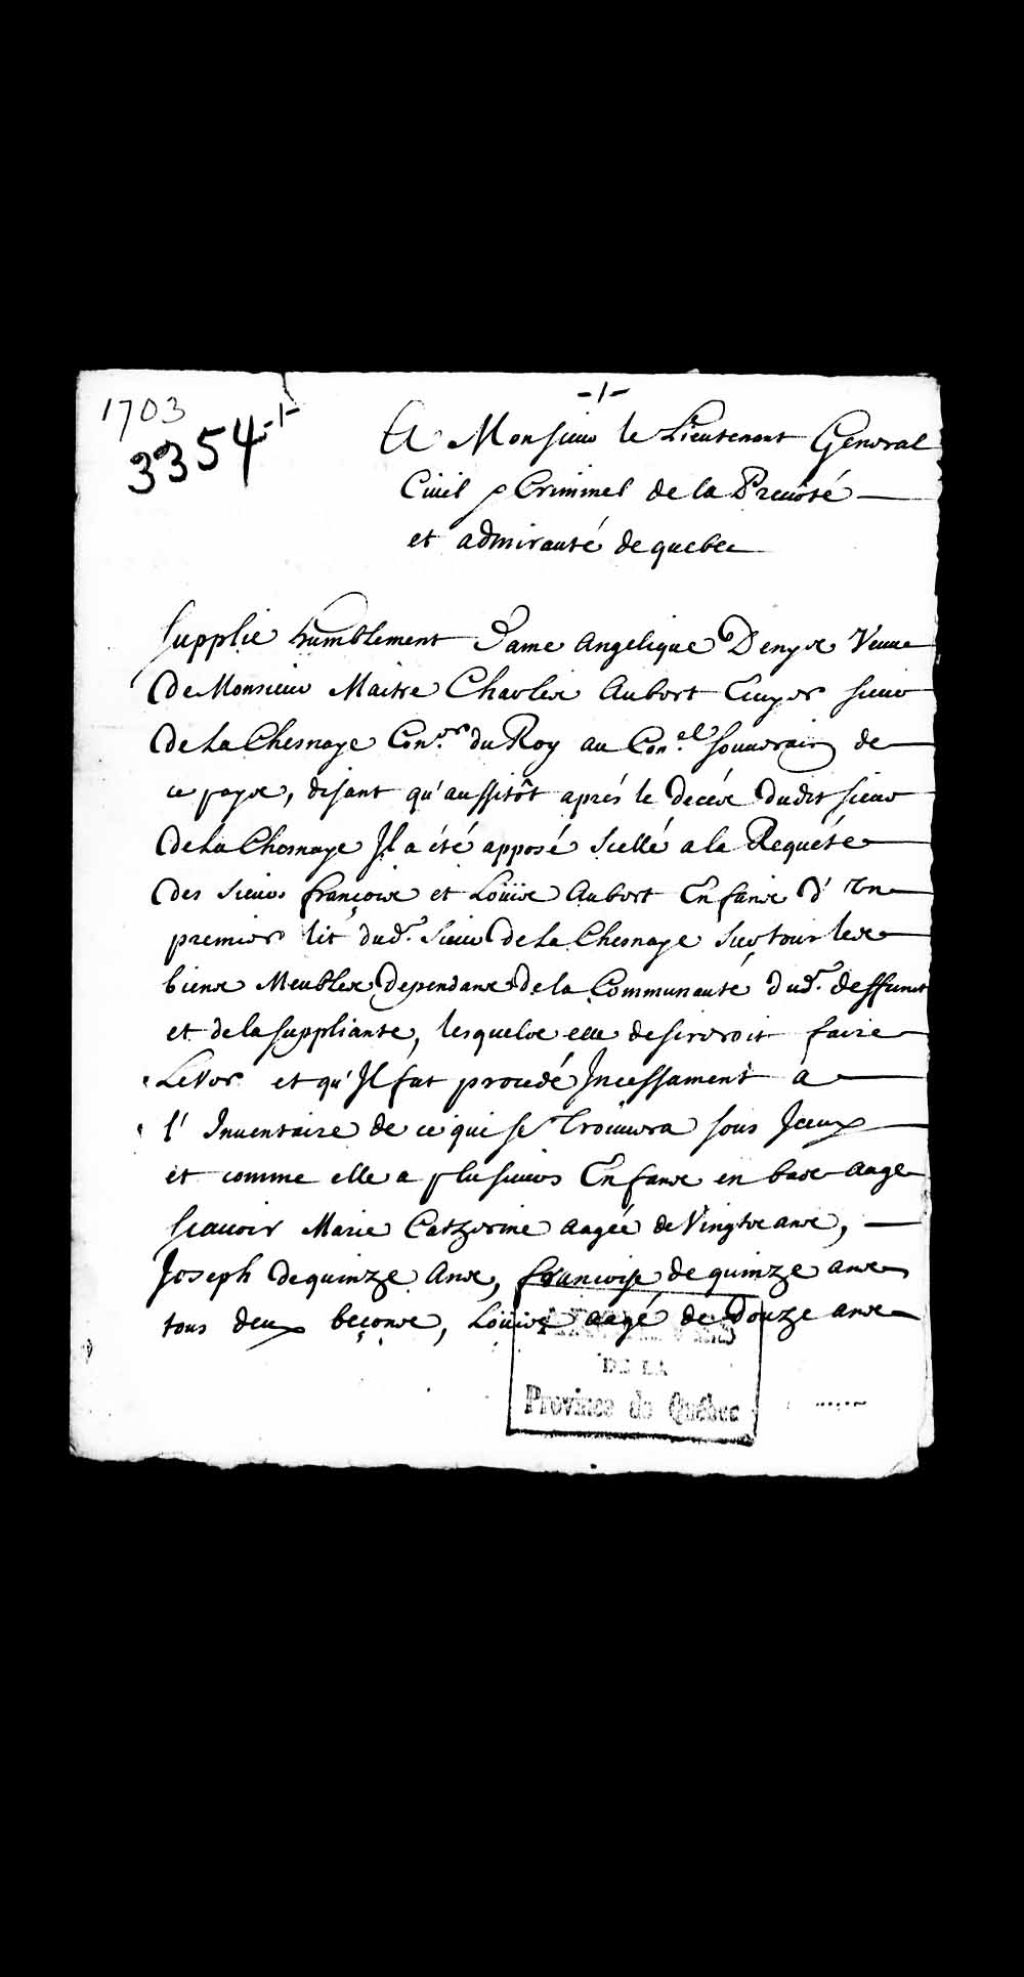 -1-
1703
3354 -1-
A Monsieur le Lieutenant General
Civil & Criminel de la Prevôsté
et admirauté de quebec
Supplie humblement Dame Angelique Denys Veuve
De Monsieur Maitre Charles Aubert Ecuyer sieur
De La Chesnaye Con.er du Roy au Con.el souverain de
ce pays, disant qu'aussitôt aprés le decés dudit sieur
De La Chesnaye Il a été apposé scellé a la Requéte
des sieurs françois et Loüis Aubert Enfans d'un
premier lit dud. sieur de La Chesnaye sur tous les
biens Meubles dependans de la Communauté dud. deffunct
et de la suppliante, lesquels elle desireroit faire
Lever et qu'Il fut procedé Incessament a
l'Inventaire de ce qui se trouvera sous Iceux
et comme elle a plusieurs Enfans en bas aage
scavoir Marie Catherine aagée de Vingts ans,
Joseph de quinze Ans, francoise de quinze ans
tous deux beçons, Loüis aagé de Douze ans
DE LA
Province de Québec